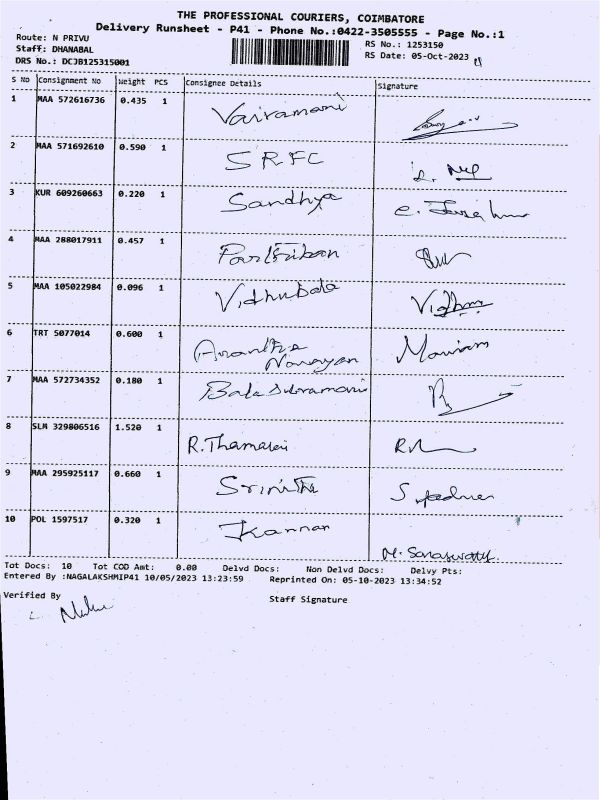 THE PROFESSIONAL COURIERS, COIMBATORE
Delivery Runsheet - P41 - Phone No.:0422-3505555 - Page No.:1
Route: N PRIVU
RS No.: 1253150
Staff: DHANABAL
RS Date: 05-Oct-2023
DRS No.: DCJB125315001
S No Consignment No Weight PCS Consignee Details Signature
1 MAA 572616736 0.435 1 Vairamani
2 MAA 571692610 0.590 1 SRFC
3 KUR 609260663 0.220 1 Sandhya
4 MAA 288017911 0.457 1
5 MAA 105022984 0.096 1 Vidhubala
6 TRT 5077014 0.600 1 Anantha
Narayan
7 MAA 572734352 0.180 1 Balasubramani
8 SLM 329806516 1.520 1 R.Thamarai
9 MAA 295925117 0.660 1 Srinitha
10 POL 1597517 0.320 1 Kannan
M. Saraswathy
Tot Docs: 10 Tot COD Amt: 0.00 Delvd Docs: Non Delvd Docs: Delvy Pts:
Entered By :NAGALAKSHMIP41 10/05/2023 13:23:59 Reprinted On: 05-10-2023 13:34:52
Verified By
Staff Signature